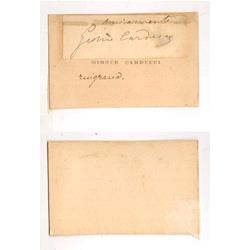 Giosuè Carducci
GIOSUE CARDUCCI
ringrazia.